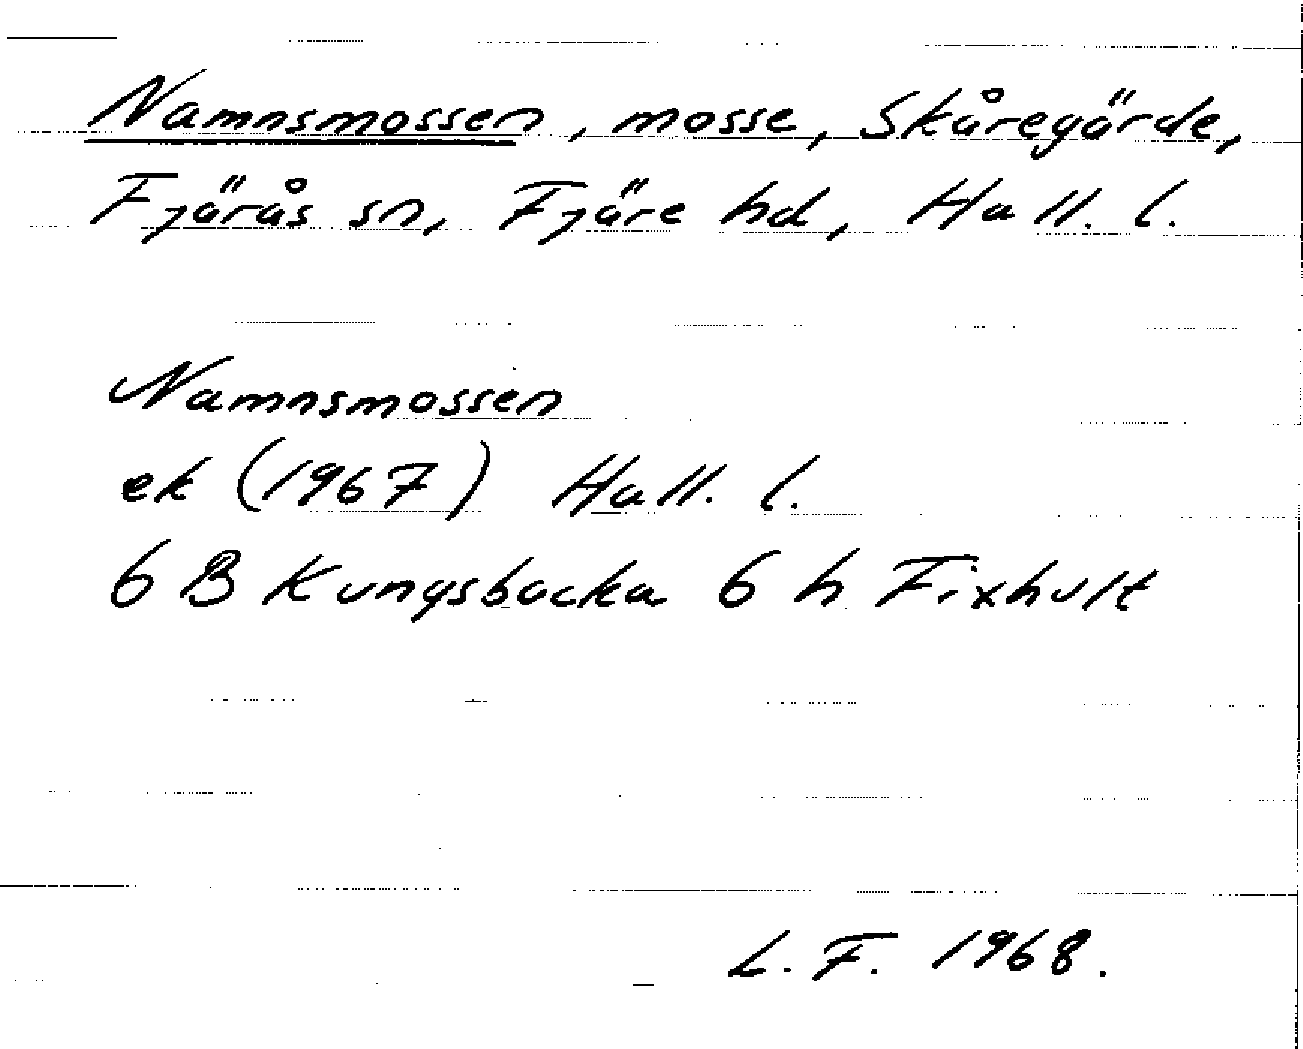 Namnsmossen, mosse, Skåregärde,
Fjärås sn, Fjäre hd, Hall. l.
Namnsmossen
ek (1967) Hall. l.
6 B Kungsbacka 6 h Fixhult
L. F. 1968.